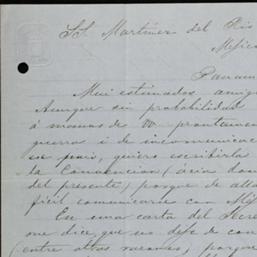 SS. Martinez del Rio
Mejico
Panam
Mui estimados amig
Aunque sin probabilidad
á manos de VV. prontamen
guerra i de incomunicac
ese pais, quiero escribirla
la Convencion
del presente) porque de alla
fácil comunicarse con Méj
Ese una carta del
me dice, que un de con
(entre otras razones), porque